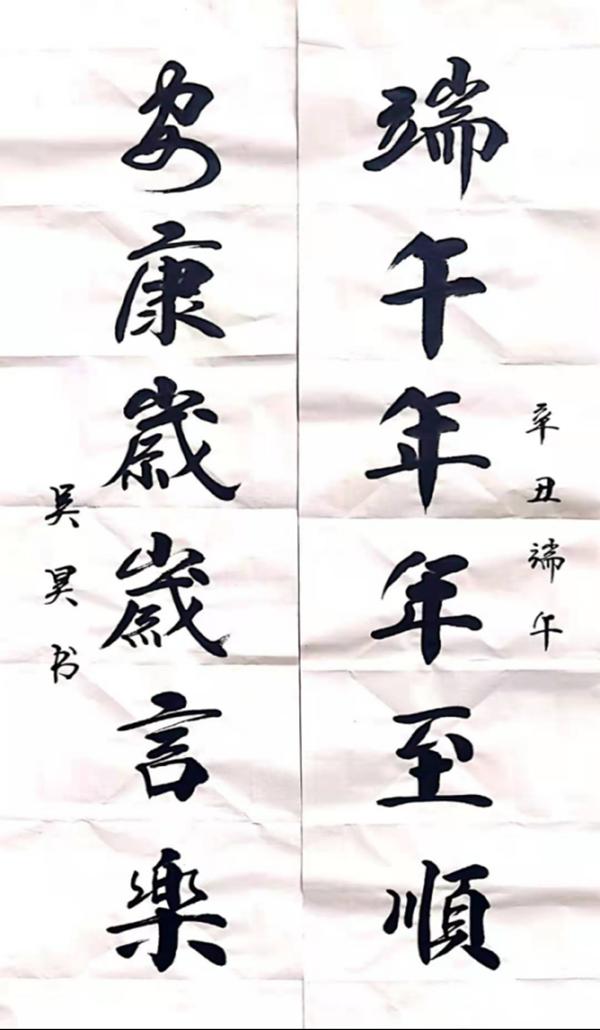 辛丑端午
端午年年至順
安康歲歲言楽
吴昊书